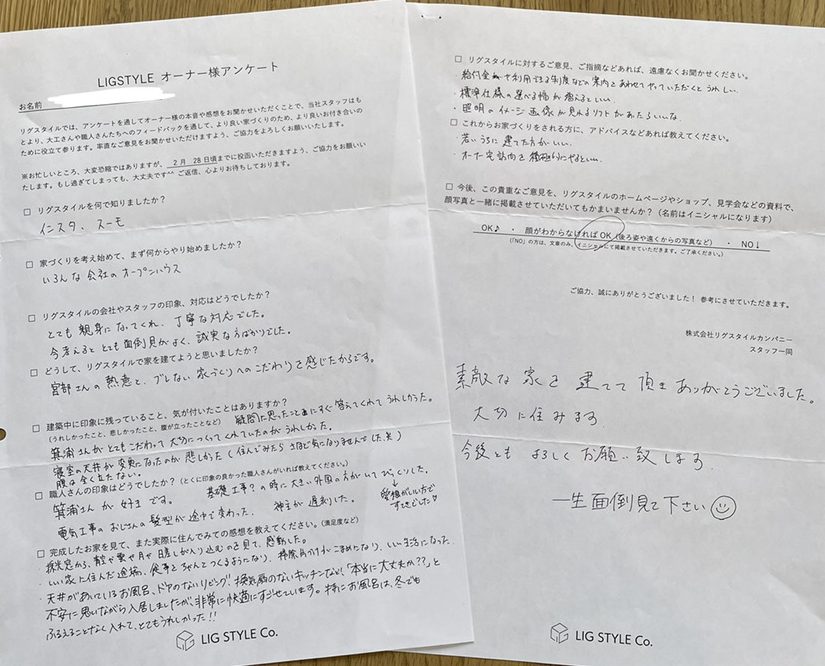 LIGSTYLE オーナー様アンケート
お名前
リグスタイルでは、アンケートを通してオーナー様の本音や感想をお聞かせいただくことで、当社スタッフはも
とより、大工さんや職人さんたちへのフィードバックを通して、より良い家づくりのため、より良いお付き合いの
ために役立て参ります。率直なご意見をお聞かせいただけますよう、ご協力をよろしくお願いいたします。
※お忙しいところ、大変恐縮ではありますが、2月 28日頃までに投函いただきますよう、ご協力をお願いい
たします。もし過ぎてしまっても、大丈夫です^^ ご返信、心よりお待ちしております。
□ リグスタイルを何で知りましたか？
インスタ、スーモ
□ 家づくりを考え始めて、まず何からやり始めましたか？
いろんな会社のオープンハウス
□ リグスタイルの会社やスタッフの印象、対応はどうでしたか？
とても親身になってくれ、丁寧な対応でした。
今考えるととても面倒見がよく、誠実な方ばかりでした。
□ どうして、リグスタイルで家を建てようと思いましたか？
宮部さんの熱意と、ブレない家づくりへのこだわりを感じたからです。
□ 建築中に印象に残っていること、気が付いたことはありますか？
(うれしかったこと、悲しかったこと、腹が立ったことなど) 疑問に思ったことにすぐ答えてくれてうれしかった。
箕浦さんがとてもこだわって大切につくってくれていたのがうれしかった。
寝室の天井が変更になったのが悲しかった(住んでみたらさほど気になりませんでした。笑)
腹は全く立たない。
□ 職人さんの印象はどうでしたか？(とくに印象の良かった職人さんがいれば教えてください。)
箕浦さんが好きです。 基礎工事？の時に大きい外国の方がいてびっくりした。
→愛想がいい方ですてきでした!!
電気工事のおじさんの髪型が途中で変わった。 神主が遅刻した。
□ 完成したお家を見て、また実際に住んでみての感想を教えてください。(満足度など)
・採光窓から、青空や雲や月や日差しが入り込むのを見て、感動した。
・いい家に住んだ途端、食事をちゃんとつくるようになり、掃除片づけもこまめになり、いい生活になった
・天井があいているお風呂、ドアのないリビング、換気扇のないキッチンなど、「本当に大丈夫か??」と
不安に思いながら入居しましたが、非常に快適にすごせています。特にお風呂は、冬でも
ふるえることなく入れて、とてもうれしかった!!
LIG STYLE Co.
□ リグスタイルに対するご意見、ご指摘などあれば、遠慮なくお聞かせください。
・給付金や利用できる制度などの案内とあわせてやっていただくとうれしい。
・標準仕様の選べる幅が増えるといい。
・照明のイメージ画像が見えるソフトがあたらいいな
□ これからお家づくりをされる方に、アドバイスなどあれば教えてください。
・若いうちに建てた方がいい。
・オーナー宅訪問を積極的にやるといい。
□ 今後、この貴重なご意見を、リグスタイルのホームページやショップ、見学会などの資料で、
顔写真と一緒に掲載させていただいてもかまいませんか？(名前はイニシャルになります)
OK♪ ・ 顔がわからなければOK (後ろ姿や遠くからの写真など) ・ NO↓
(「NO」の方は、文章のみ、イニシャルにて掲載させていただきます。ご了承ください。)
ご協力、誠にありがとうございました！ 参考にさせていただきます。
株式会社リグスタイルカンパニー
スタッフ一同
素敵な家を建てて頂きありがとうございました。
大切に住みます
今後とも よろしくお願い致します.
一生面倒見て下さい
LIG STYLE Co.